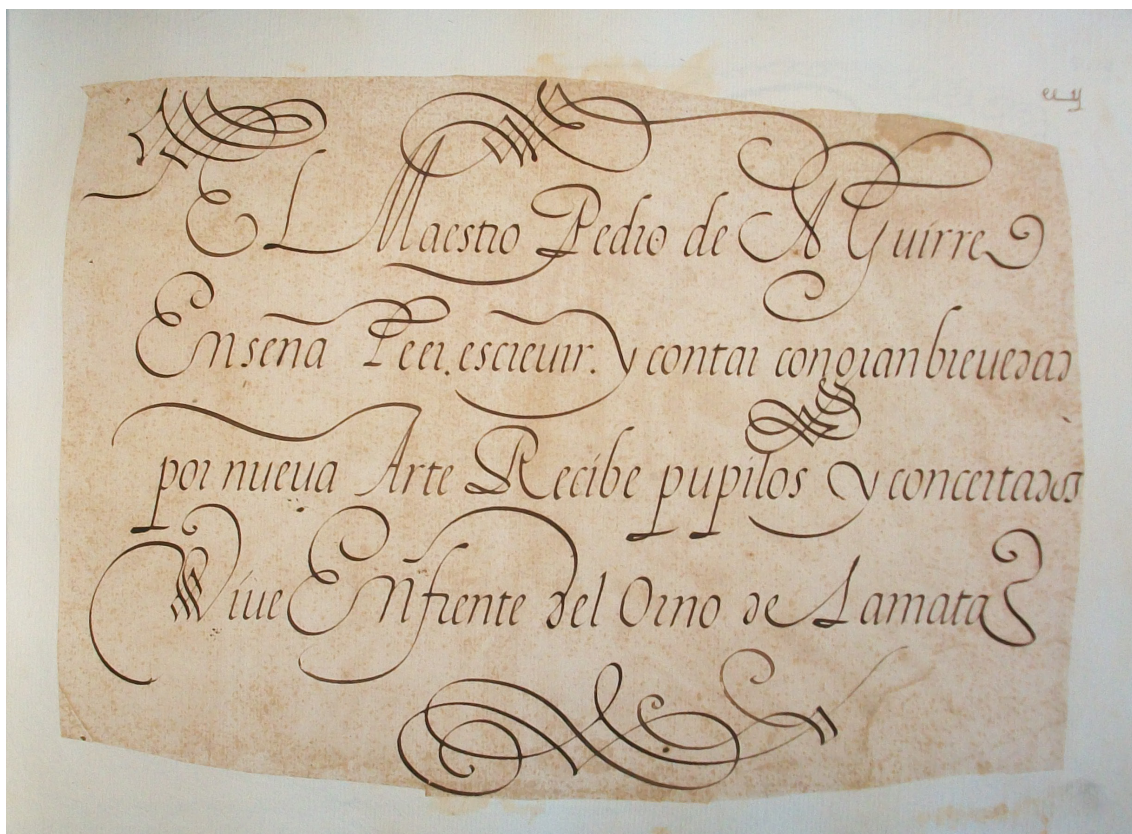 EL Maestro Pedro de AGuirre
Enseña Leer. escrevir. y contar con gran brevedad
por nueva Arte Recibe pupilos y concertados
Vive Enfrente del Orno de Lamata